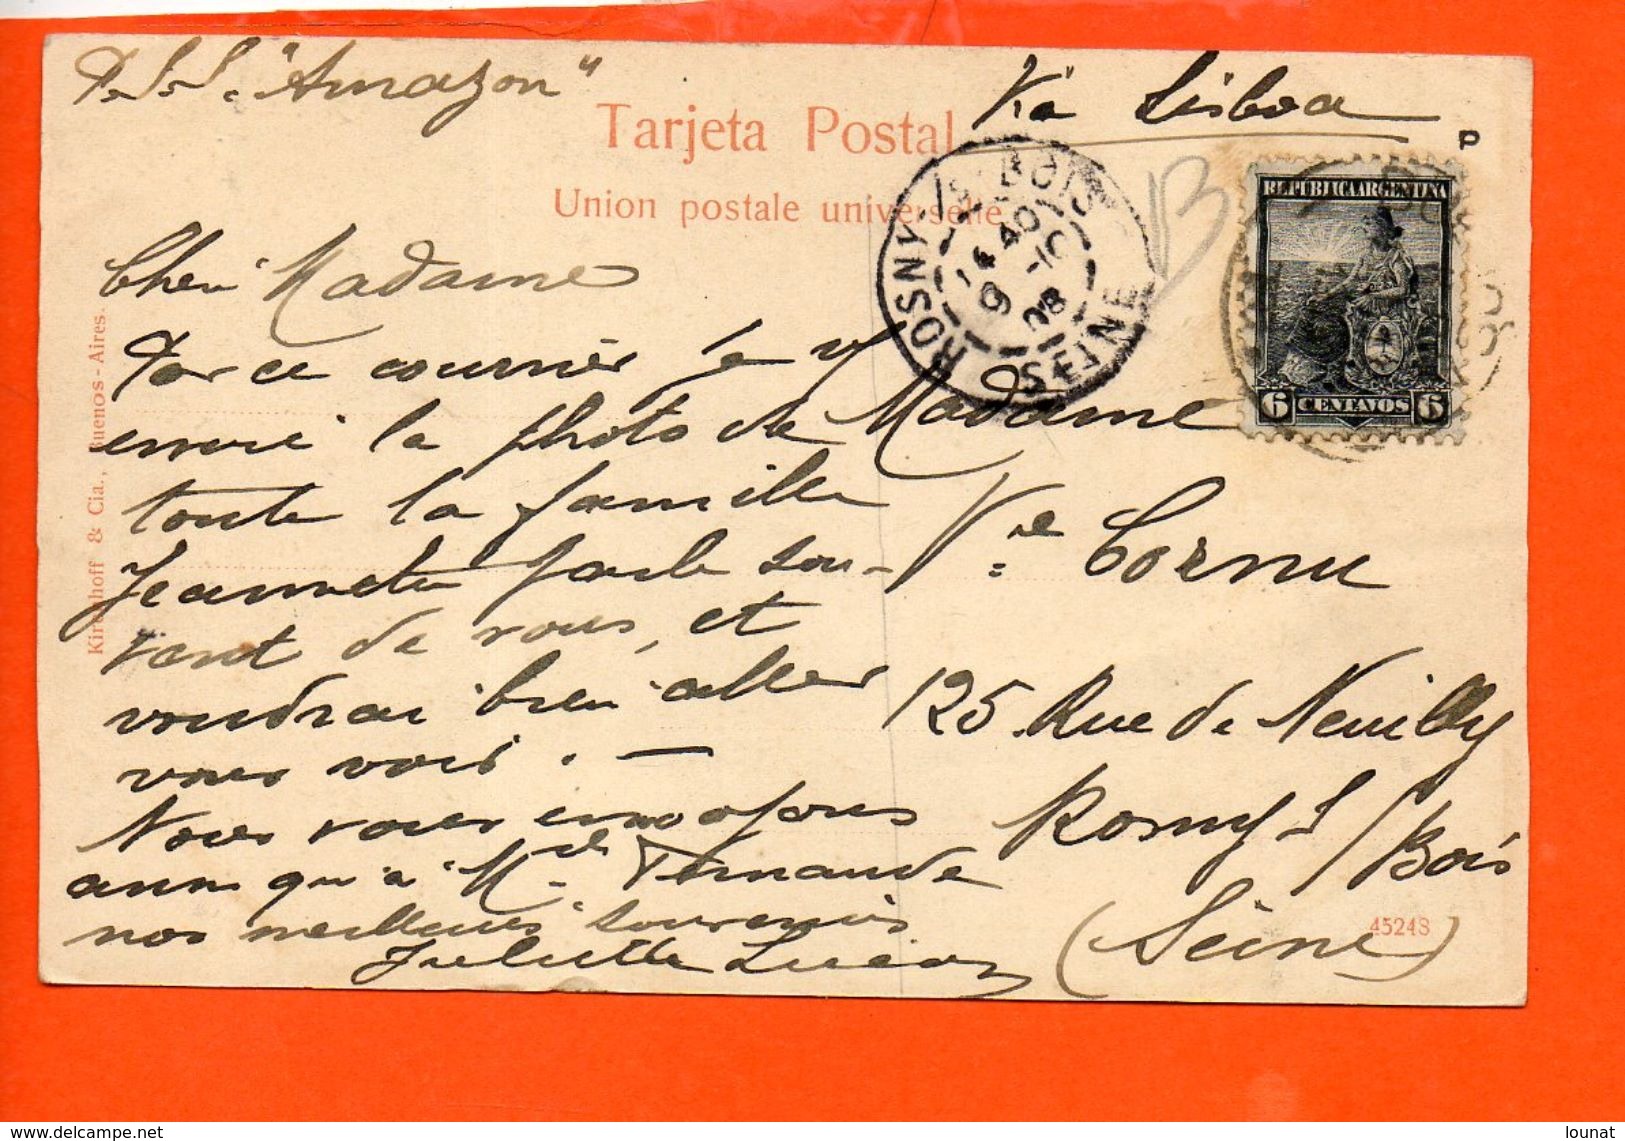 P. S. S. "Amazon"
Via Lisboa
Tarjeta Postal
Union postale universelle
P
B
REPUBLICA ARGENTINA
6 CENTAVOS 6
ROSNY-S-BOIS
14 40
9 -10
08
SEINE
Kirchhoff & Cia., Buenos-Aires.
Cher Madame
Par ce courrier je v
envoi la photo de
toute la famille
Jeannette parle sou-
vent de vous, et
voudrai bien aller
vous voir. —
Nous vous envoyons
ainsi qu'a Melle Fernande
nos meilleurs souvenirs
Juliette
Madame
Vve Cornu
125. Rue de Neuilly
Rosny s/Bois
(Seine)
45248
lounat
www.delcampe.net